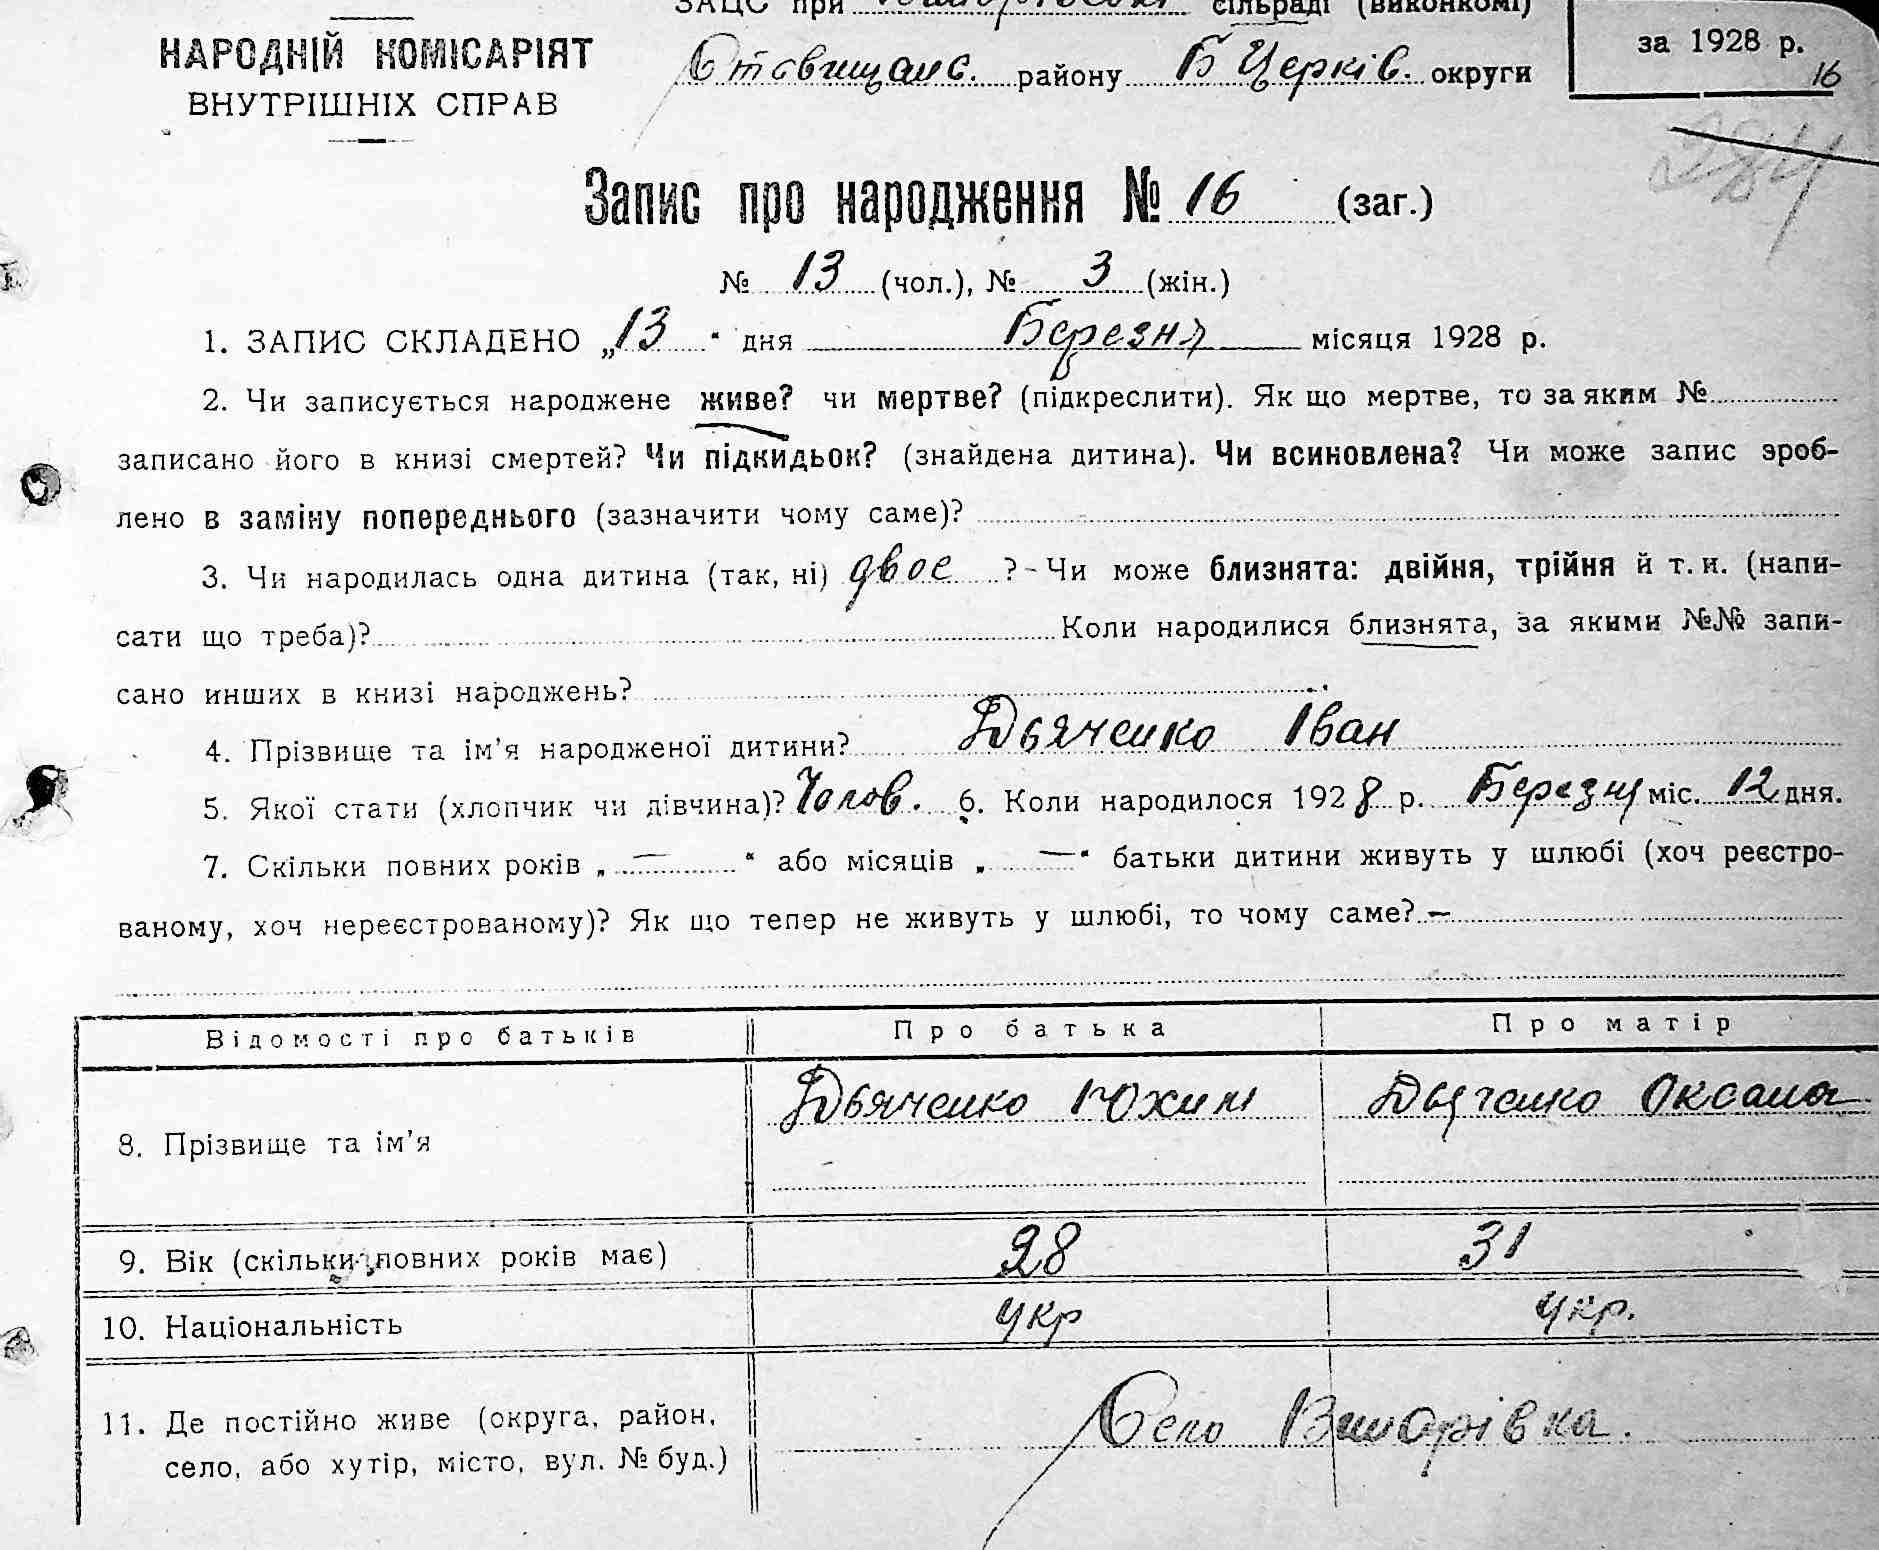 ЗАЦС при сільраді (виконкомі)
НАРОДНІЙ КОМІСАРІЯТ
ВНУТРІШНІХ СПРАВ
Ставищанс. району Б Церків. округи
за 1928 р.
16
284
Запис про народження № 16 (заг.)
№ 13 (чол.), № 3 (жін.)
1. ЗАПИС СКЛАДЕНО „13“ дня Березня місяця 1928 р.
2. Чи записується народжене живе? чи мертве? (підкреслити). Як що мертве, то за яким №
записано його в книзі смертей? Чи підкидьок? (знайдена дитина). Чи всиновлена? Чи може запис зроб-
лено в заміну попереднього (зазначити чому саме)?
3. Чи народилась одна дитина (так, ні) двоє ? - Чи може близнята: двійня, трійня й т. и. (напи-
сати що треба)? Коли народилися близнята, за якими №№ запи-
сано инших в книзі народжень?
4. Прізвище та ім’я народженої дитини? Дьяченко Іван
5. Якої стати (хлопчик чи дівчина)? Чолов. 6. Коли народилося 1928 р. Березня міс. 12 дня.
7. Скільки повних років „ — “ або місяців „ — “ батьки дитини живуть у шлюбі (хоч реєстро-
ваному, хоч нереєстрованому)? Як що тепер не живуть у шлюбі, то чому саме? —
Відомості про батьків Про батька Про матір
8. Прізвище та ім’я Дьяченко Юхим Дьяченко Оксана
9. Вік (скільки повних років має) 28 31
10. Національність укр укр.
11. Де постійно живе (округа, район,
село, або хутір, місто, вул. № буд.) Село Винарівка.